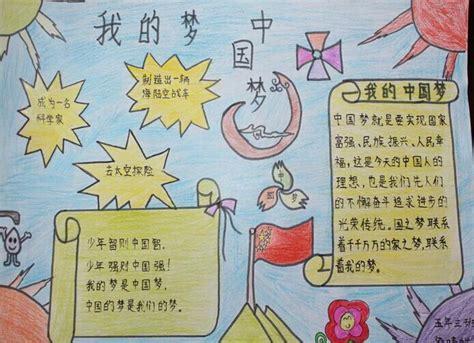 我的梦 中
国
梦
成为一名
科学家
制造出一辆
海陆空战车
去太空探险
少年智则中国智,
少年强则中国强!
我的梦是中国梦,
中国的梦是我们的梦。
我的中国梦
中国梦就是要实现国家
富强、民族振兴、人民幸
福,这是今天的中国人的
理想,也是我们先人们
的不懈奋斗追求进步的
光荣传统。国之梦联系
着千千万万的家之梦,联系
着我的梦。
五年三班